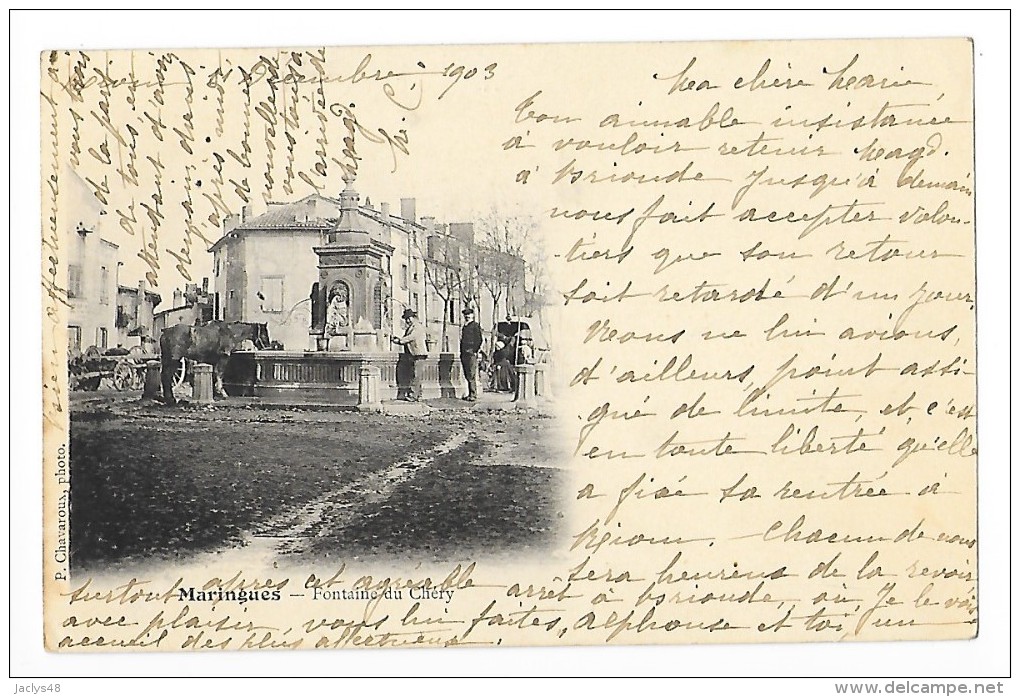 Riom Décembre 1903
Ma chère Marie,
Ton aimable insistance
à vouloir retenir Magd.
à Brioude jusqu'à demain
nous fait accepter volon-
tiers que son retour
soit retardé d'un jour.
Nous ne lui avions,
d'ailleurs, point assi-
gné de limite, et c'est
en toute liberté qu'elle
a fixé sa rentrée à
Riom. — Chacun de nous
sera heureux de la revoir
surtout après cet agréable arrêt à Brioude, où, je le vois
avec plaisir, vous lui faites, Alphonse et toi, un
accueil des plus affectueux.
Bien affectueusement à
vous trois
de la part
de tous, en
attendant d'avoir
demain, dans
l'après midi
de bonnes
nouvelles de
vous tous à
l'arrivée de
Magd.
Maringues — Fontaine du Chéry
P. Chavaroux, photo.
Jaclys48
www.delcampe.net